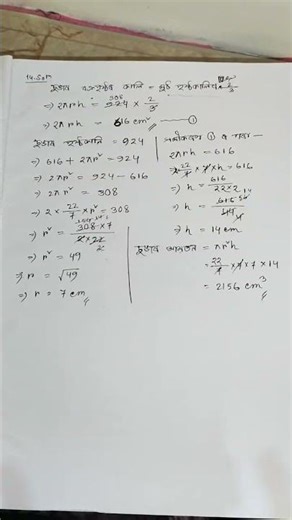 14. Solⁿ
চুঙাৰ বক্ৰপৃষ্ঠৰ কালি = পৃষ্ঠকালিৰ × 2/3
⇒ 2πrh = 924 × 2/3
⇒ 2πrh = 616 cm² —— ①
চুঙাৰ পৃষ্ঠকালি = 924
⇒ 616 + 2πr² = 924
⇒ 2πr² = 924 - 616
⇒ 2πr² = 308
⇒ 2 × 22/7 × r² = 308
⇒ r² = 308 × 7 / 2 × 22
⇒ r² = 49
⇒ r = √49
⇒ r = 7 cm
সমীকৰণ ① ৰ পৰা —
2πrh = 616
⇒ 2 × 22/7 × 7 × h = 616
⇒ h = 616 / 22 × 2
⇒ h = 616 / 44
⇒ h = 14 cm
চুঙাৰ আয়তন = πr²h
= 22/7 × 7 × 7 × 14
= 2156 cm³